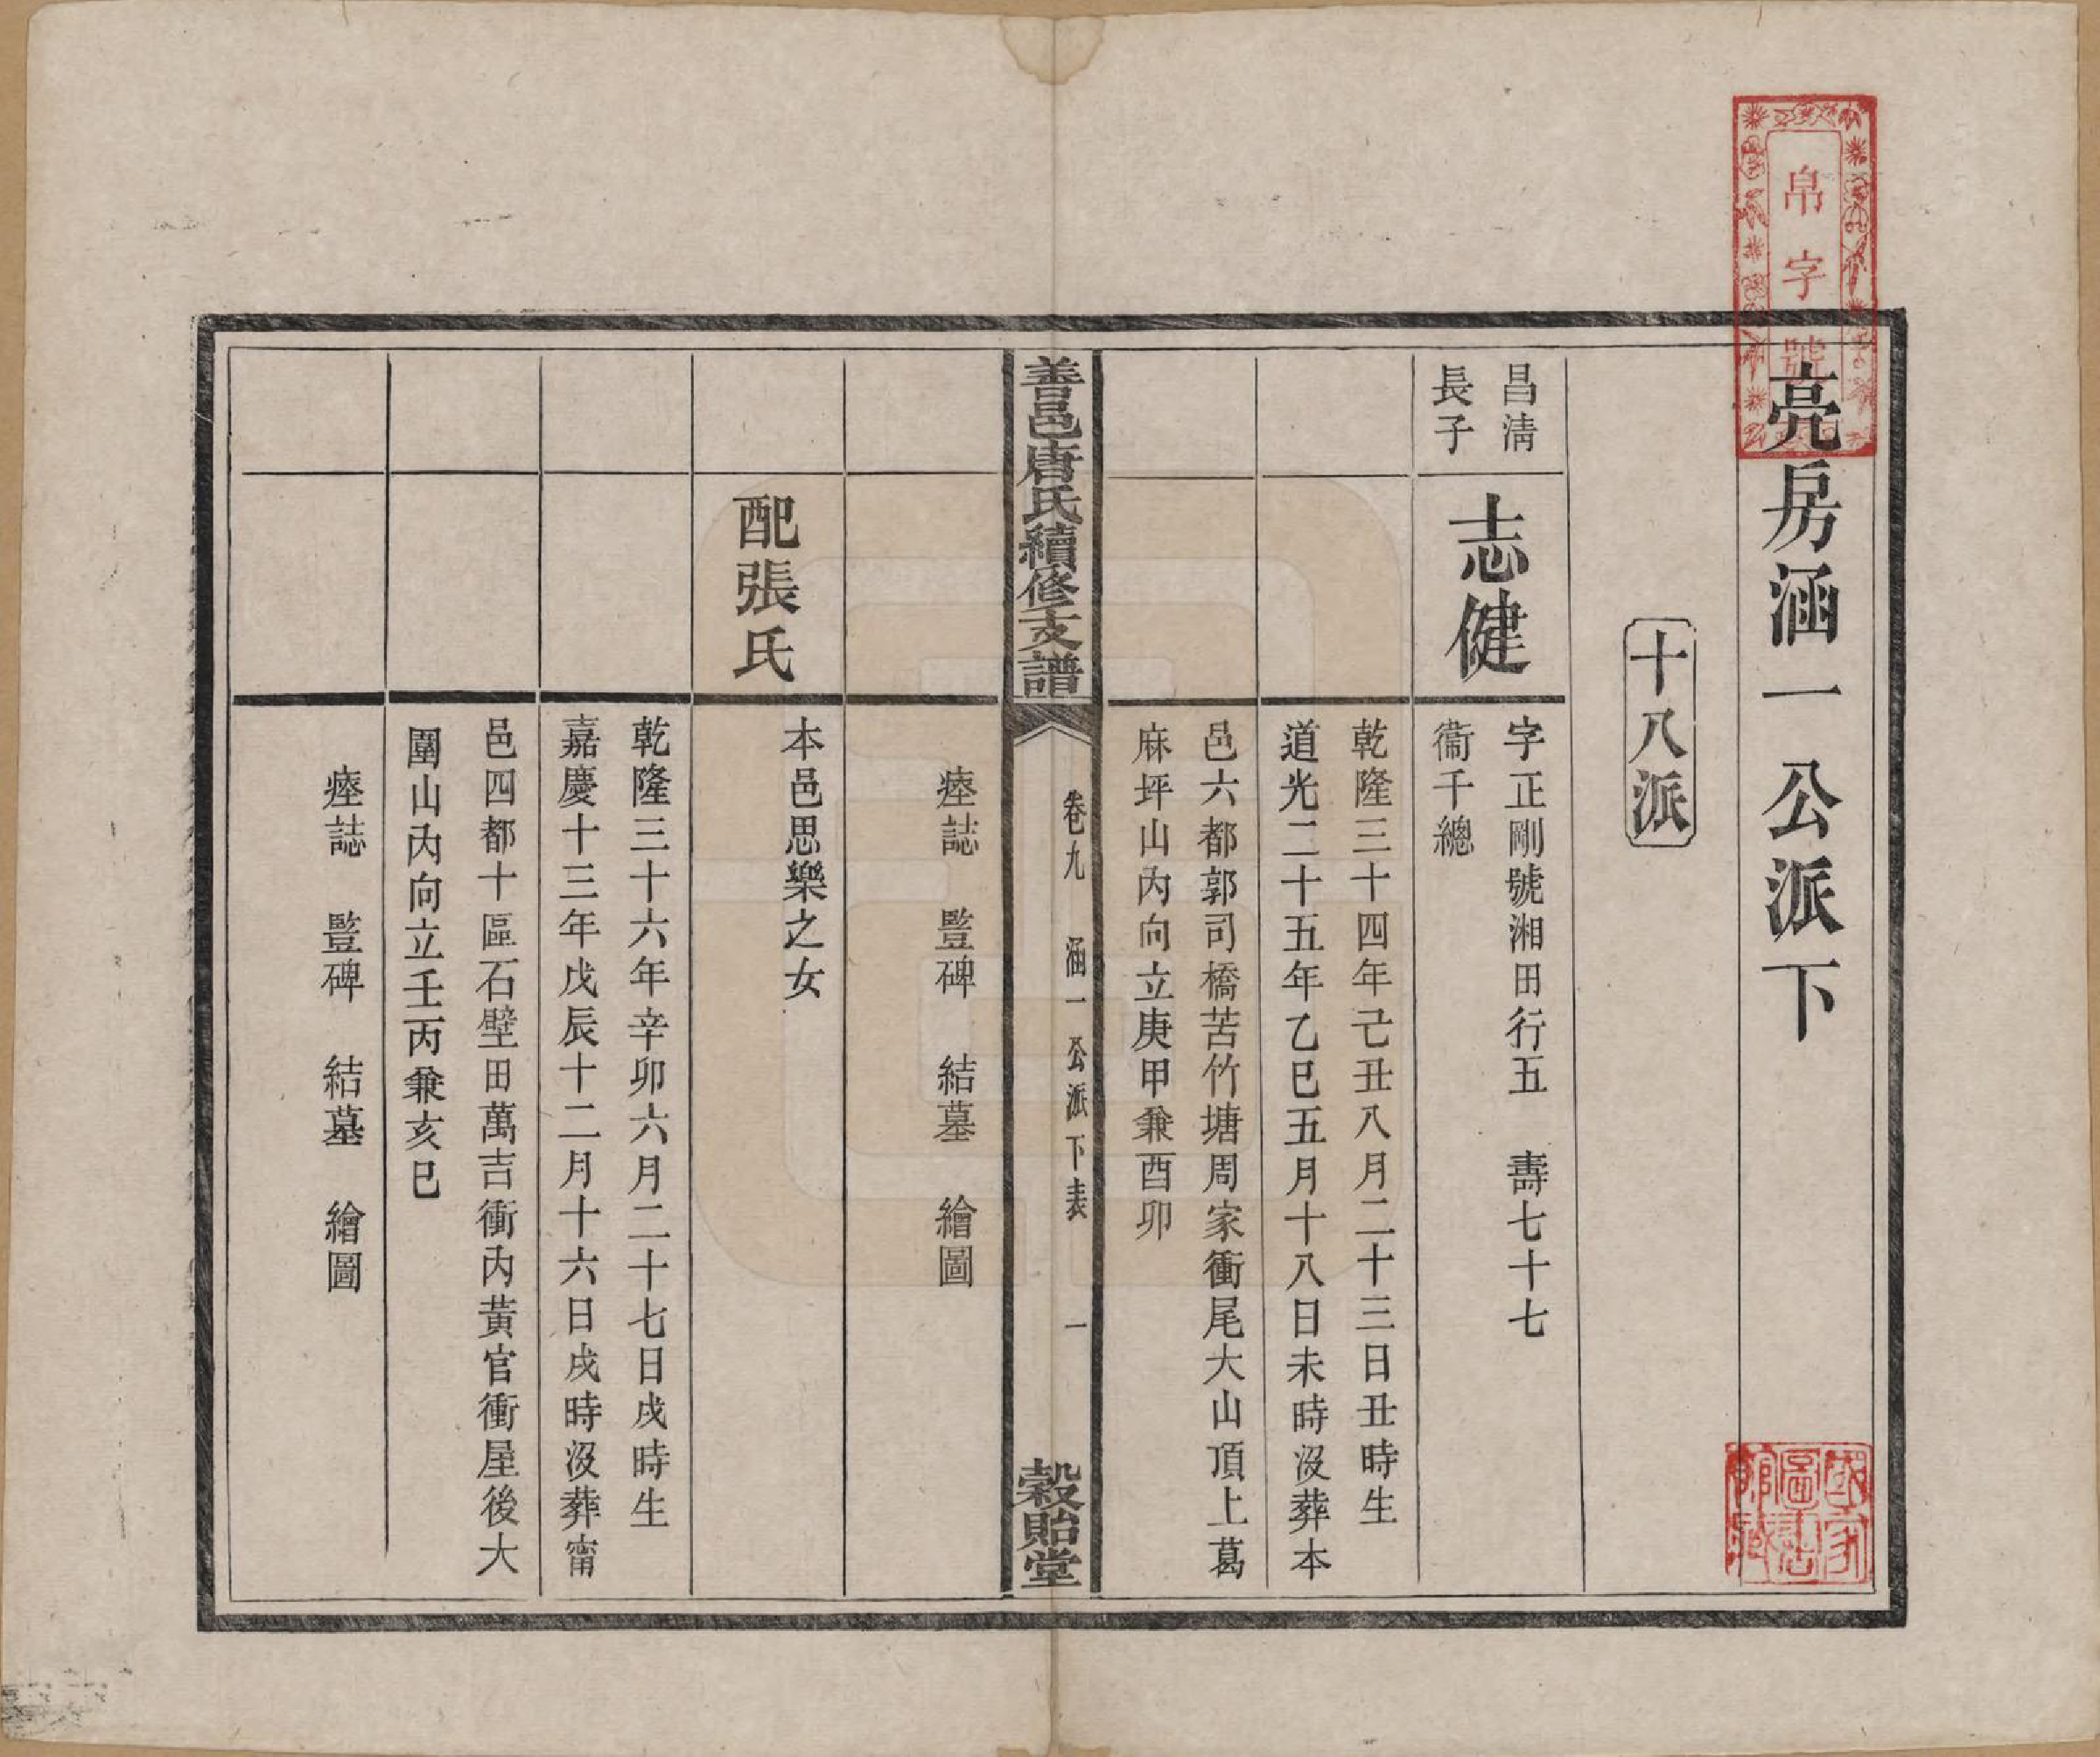 帛字號
亮房涵一公派下
十八派
昌淸
長子
志健
字正剛號湘田行五　壽七十七
衞千總
乾隆三十四年己丑八月二十三日丑時生
道光二十五年乙巳五月十八日未時沒葬本
邑六都郭司橋苦竹塘周家衝尾大山頂上葛
麻坪山內向立庚甲兼酉卯
善邑唐氏續修支譜
卷九　涵一公派下表　一
穀貽堂
瘞誌　豎碑　結墓　繪圖
配張氏
本邑思樂之女
乾隆三十六年辛卯六月二十七日戌時生
嘉慶十三年戊辰十二月十六日戌時沒葬甯
邑四都十區石壁田萬吉衝內黃官衝屋後大
圍山內向立壬丙兼亥巳
瘞誌　豎碑　結墓　繪圖
國家圖書館藏